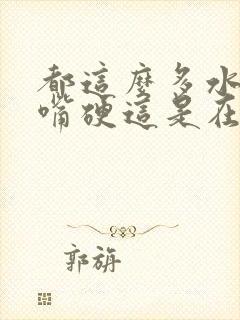 都這麼多水
嘴硬這是在
郭旃